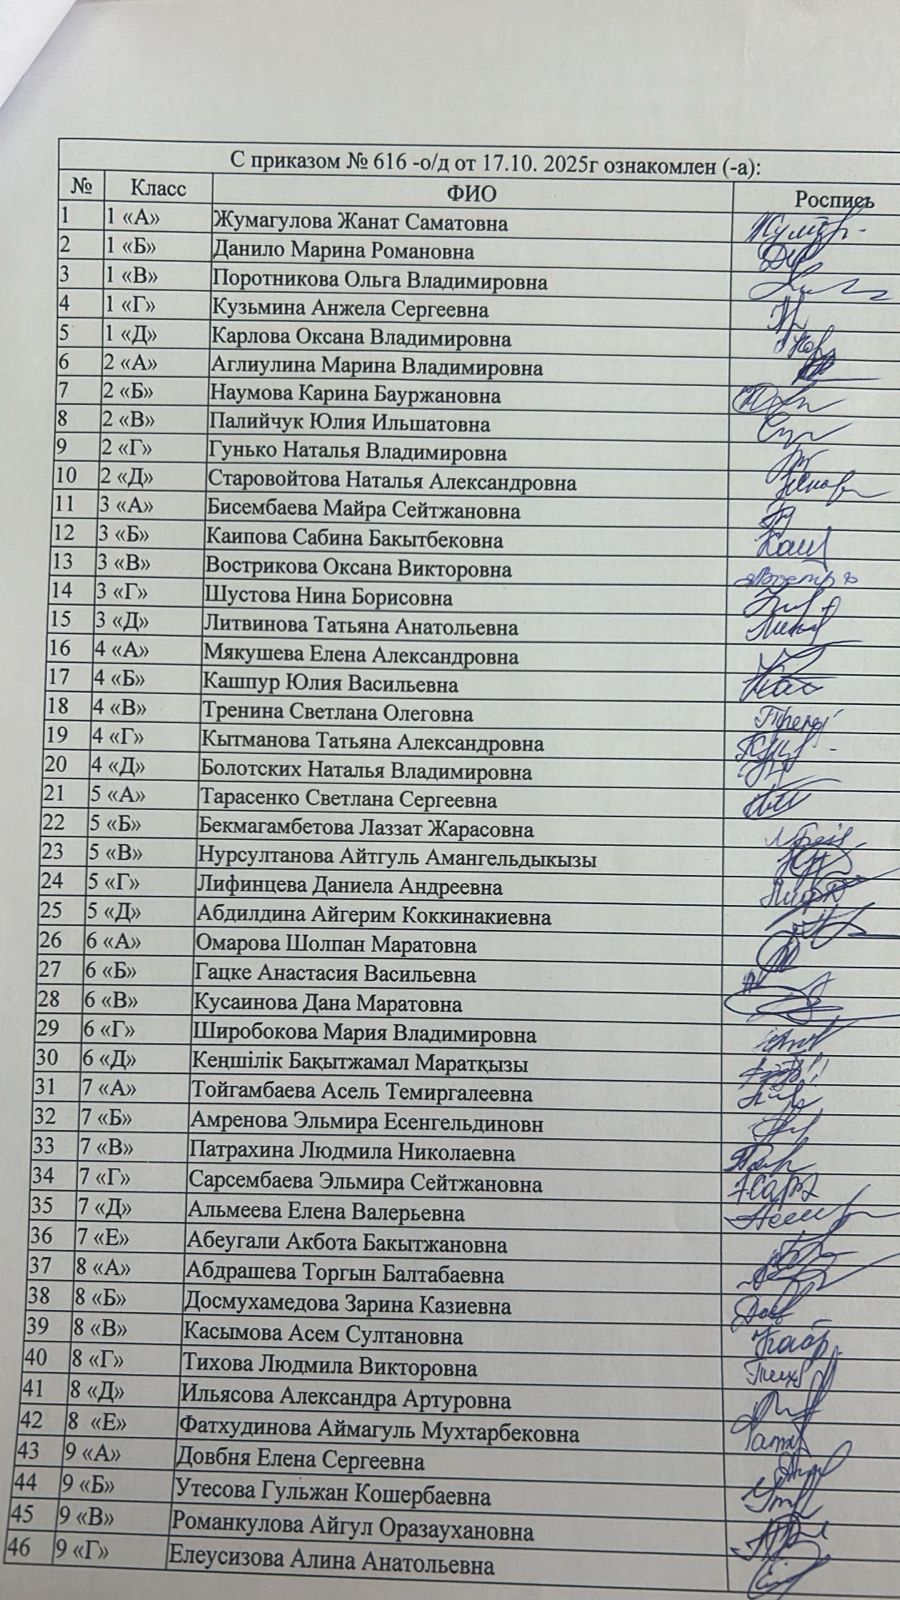 С приказом № 616 -о/д от 17.10. 2025г ознакомлен (-а):
№ Класс ФИО Роспись
1 1 «А» Жумагулова Жанат Саматовна
2 1 «Б» Данило Марина Романовна
3 1 «В» Поротникова Ольга Владимировна
4 1 «Г» Кузьмина Анжела Сергеевна
5 1 «Д» Карлова Оксана Владимировна
6 2 «А» Аглиулина Марина Владимировна
7 2 «Б» Наумова Карина Бауржановна
8 2 «В» Палийчук Юлия Ильшатовна
9 2 «Г» Гунько Наталья Владимировна
10 2 «Д» Старовойтова Наталья Александровна
11 3 «А» Бисембаева Майра Сейтжановна
12 3 «Б» Каипова Сабина Бакытбековна
13 3 «В» Вострикова Оксана Викторовна
14 3 «Г» Шустова Нина Борисовна
15 3 «Д» Литвинова Татьяна Анатольевна
16 4 «А» Мякушева Елена Александровна
17 4 «Б» Кашпур Юлия Васильевна
18 4 «В» Тренина Светлана Олеговна
19 4 «Г» Кытманова Татьяна Александровна
20 4 «Д» Болотских Наталья Владимировна
21 5 «А» Тарасенко Светлана Сергеевна
22 5 «Б» Бекмагамбетова Лаззат Жарасовна
23 5 «В» Нурсултанова Айтгуль Амангельдыкызы
24 5 «Г» Лифинцева Даниела Андреевна
25 5 «Д» Абдилдина Айгерим Коккинакиевна
26 6 «А» Омарова Шолпан Маратовна
27 6 «Б» Гацке Анастасия Васильевна
28 6 «В» Кусаинова Дана Маратовна
29 6 «Г» Широбокова Мария Владимировна
30 6 «Д» Кеңшілік Бақытжамал Маратқызы
31 7 «А» Тойгамбаева Асель Темиргалеевна
32 7 «Б» Амренова Эльмира Есенгельдиновн
33 7 «В» Патрахина Людмила Николаевна
34 7 «Г» Сарсембаева Эльмира Сейтжановна
35 7 «Д» Альмеева Елена Валерьевна
36 7 «Е» Абеугали Акбота Бакытжановна
37 8 «А» Абдрашева Торгын Балтабаевна
38 8 «Б» Досмухамедова Зарина Казиевна
39 8 «В» Касымова Асем Султановна
40 8 «Г» Тихова Людмила Викторовна
41 8 «Д» Ильясова Александра Артуровна
42 8 «Е» Фатхудинова Аймагуль Мухтарбековна
43 9 «А» Довбня Елена Сергеевна
44 9 «Б» Утесова Гульжан Кошербаевна
45 9 «В» Романкулова Айгул Оразаухановна
46 9 «Г» Елеусизова Алина Анатольевна